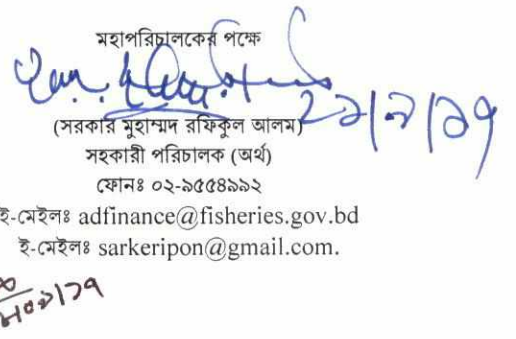 মহাপরিচালকের পক্ষে
২১/৯/১৭
(সরকার মুহাম্মদ রফিকুল আলম)
সহকারী পরিচালক (অর্থ)
ফোনঃ ০২-৯৫৫৪৯৯২
ই-মেইলঃ adfinance@fisheries.gov.bd
ই-মেইলঃ sarkeripon@gmail.com.